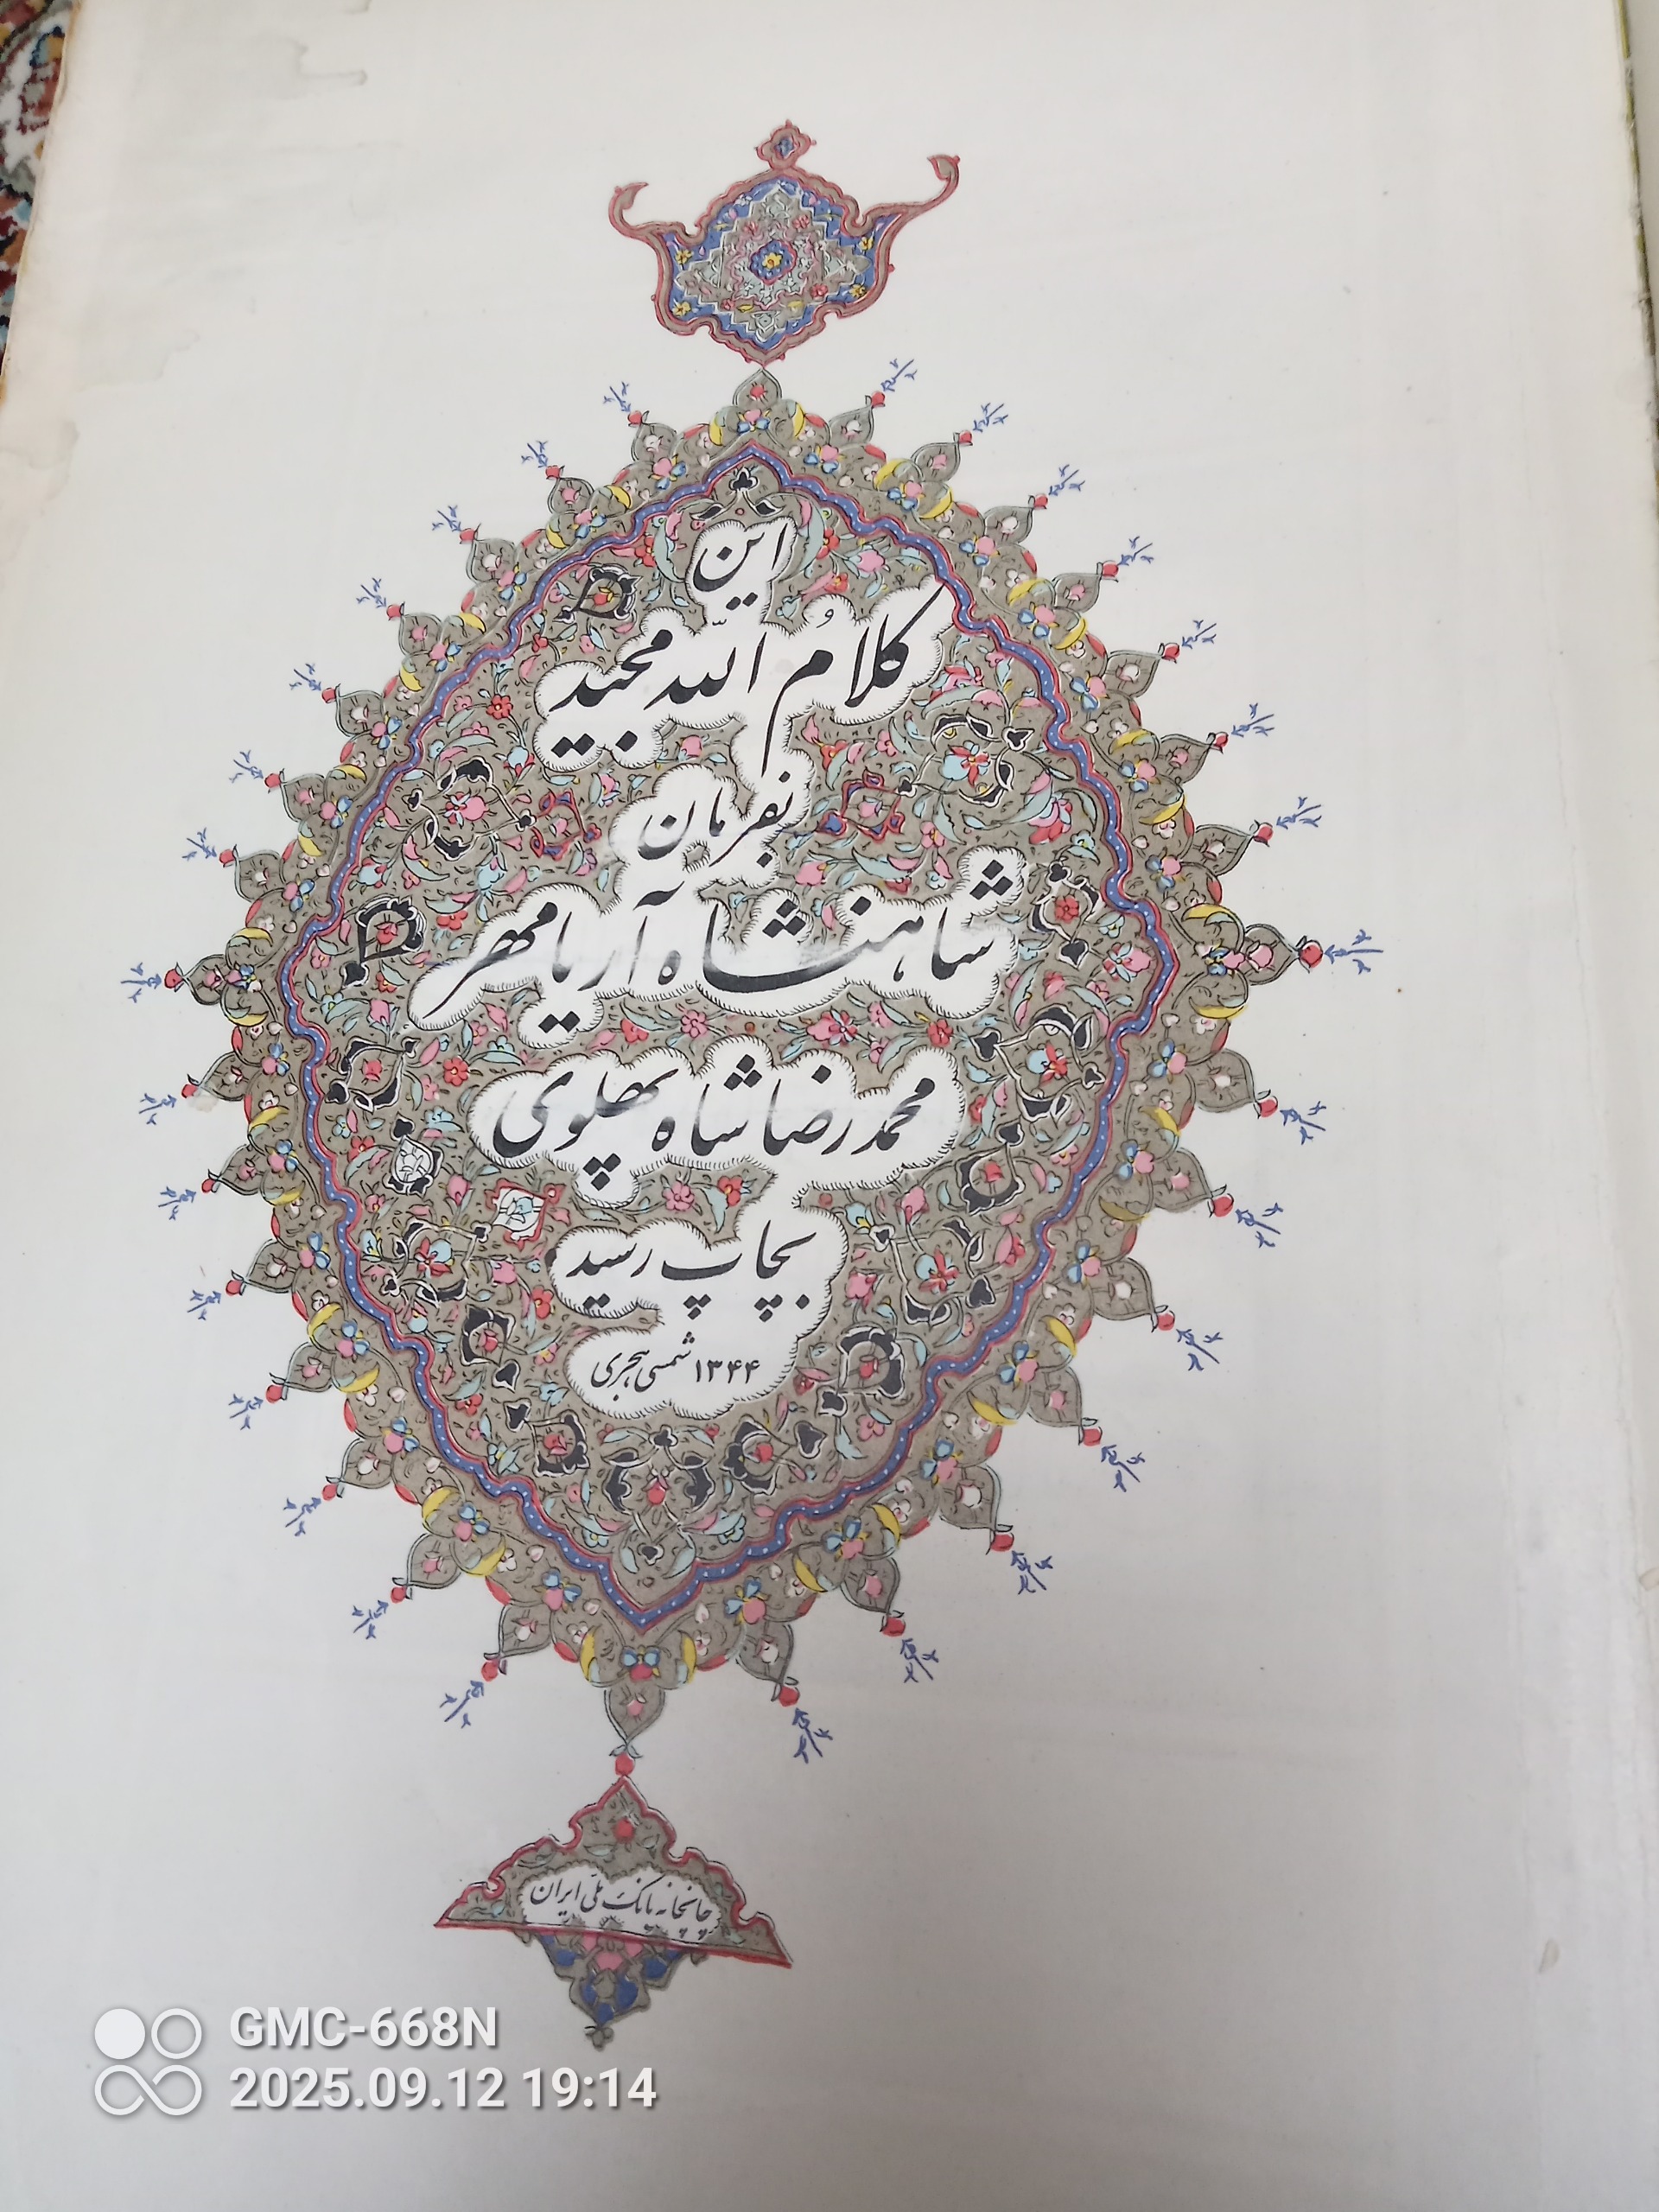 این
کلامُ اللّه مجید
بفرمان
شاهنشاه آریامهر
محمد رضا شاه پهلوی
بچاپ رسید
۱۳۴۴ شمسی هجری
چاپخانه بانک ملّی ایران
GMC-668N
2025.09.12 19:14